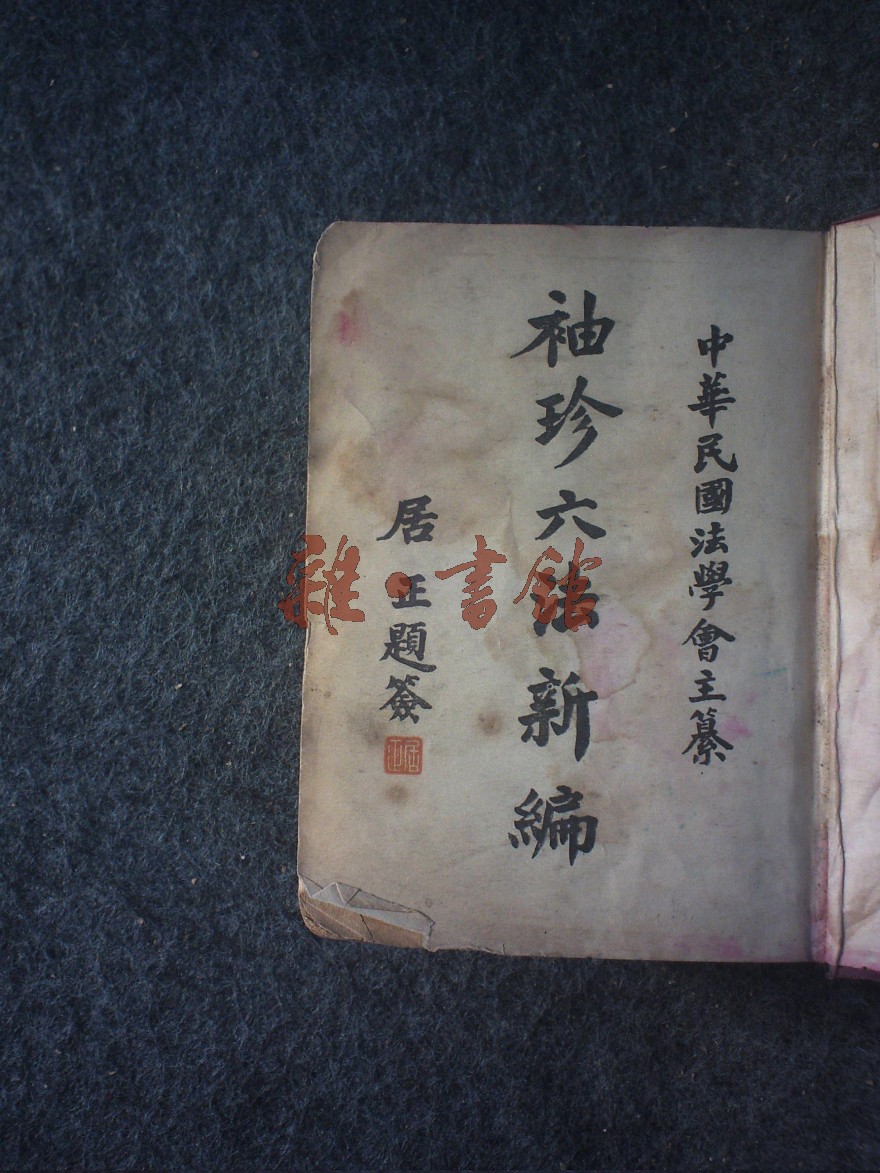 中華民國法學會主纂
袖珍六法新編
居正題簽
居正
雜·書館